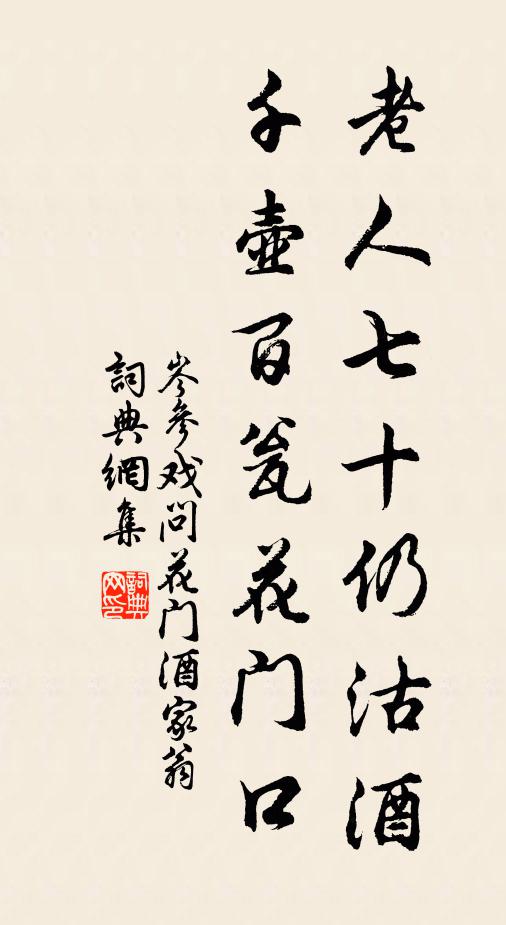 老人七十仍沽酒
千壺百瓮花门口
岑參戏问花门酒家翁
詞典網集
詞典网印